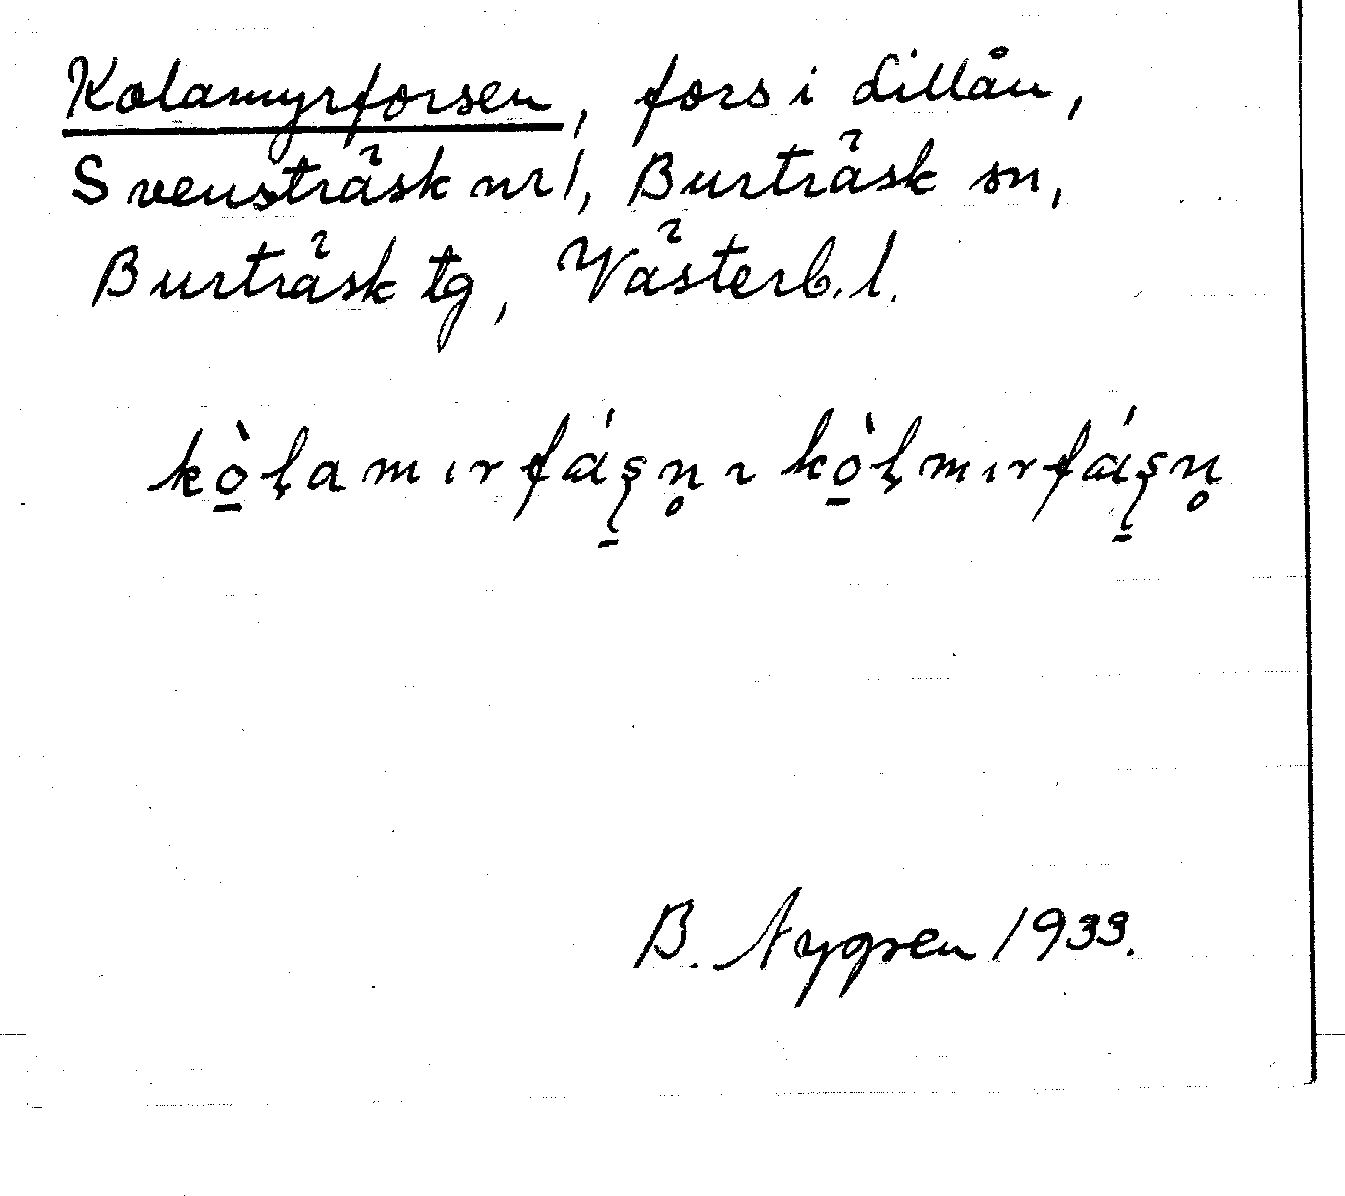 Kolamyrforsen, fors i Lillån,
Svensträsk nr 1, Burträsk sn,
Burträsk tg, Västerb. l.
kò̱ḷamırfáş̱n̥ ı kò̱ḷmırfáş̱n̥
B. Nygren 1933.